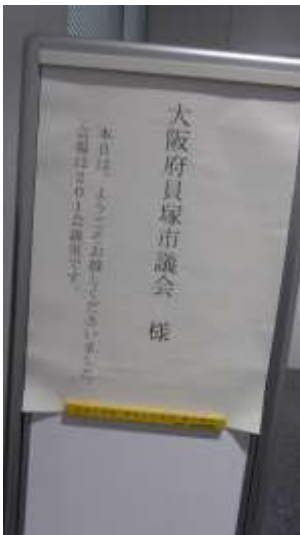 大阪府貝塚市議会　様
本日は、ようこそお越しくださいました
会場は２０１会議室です。